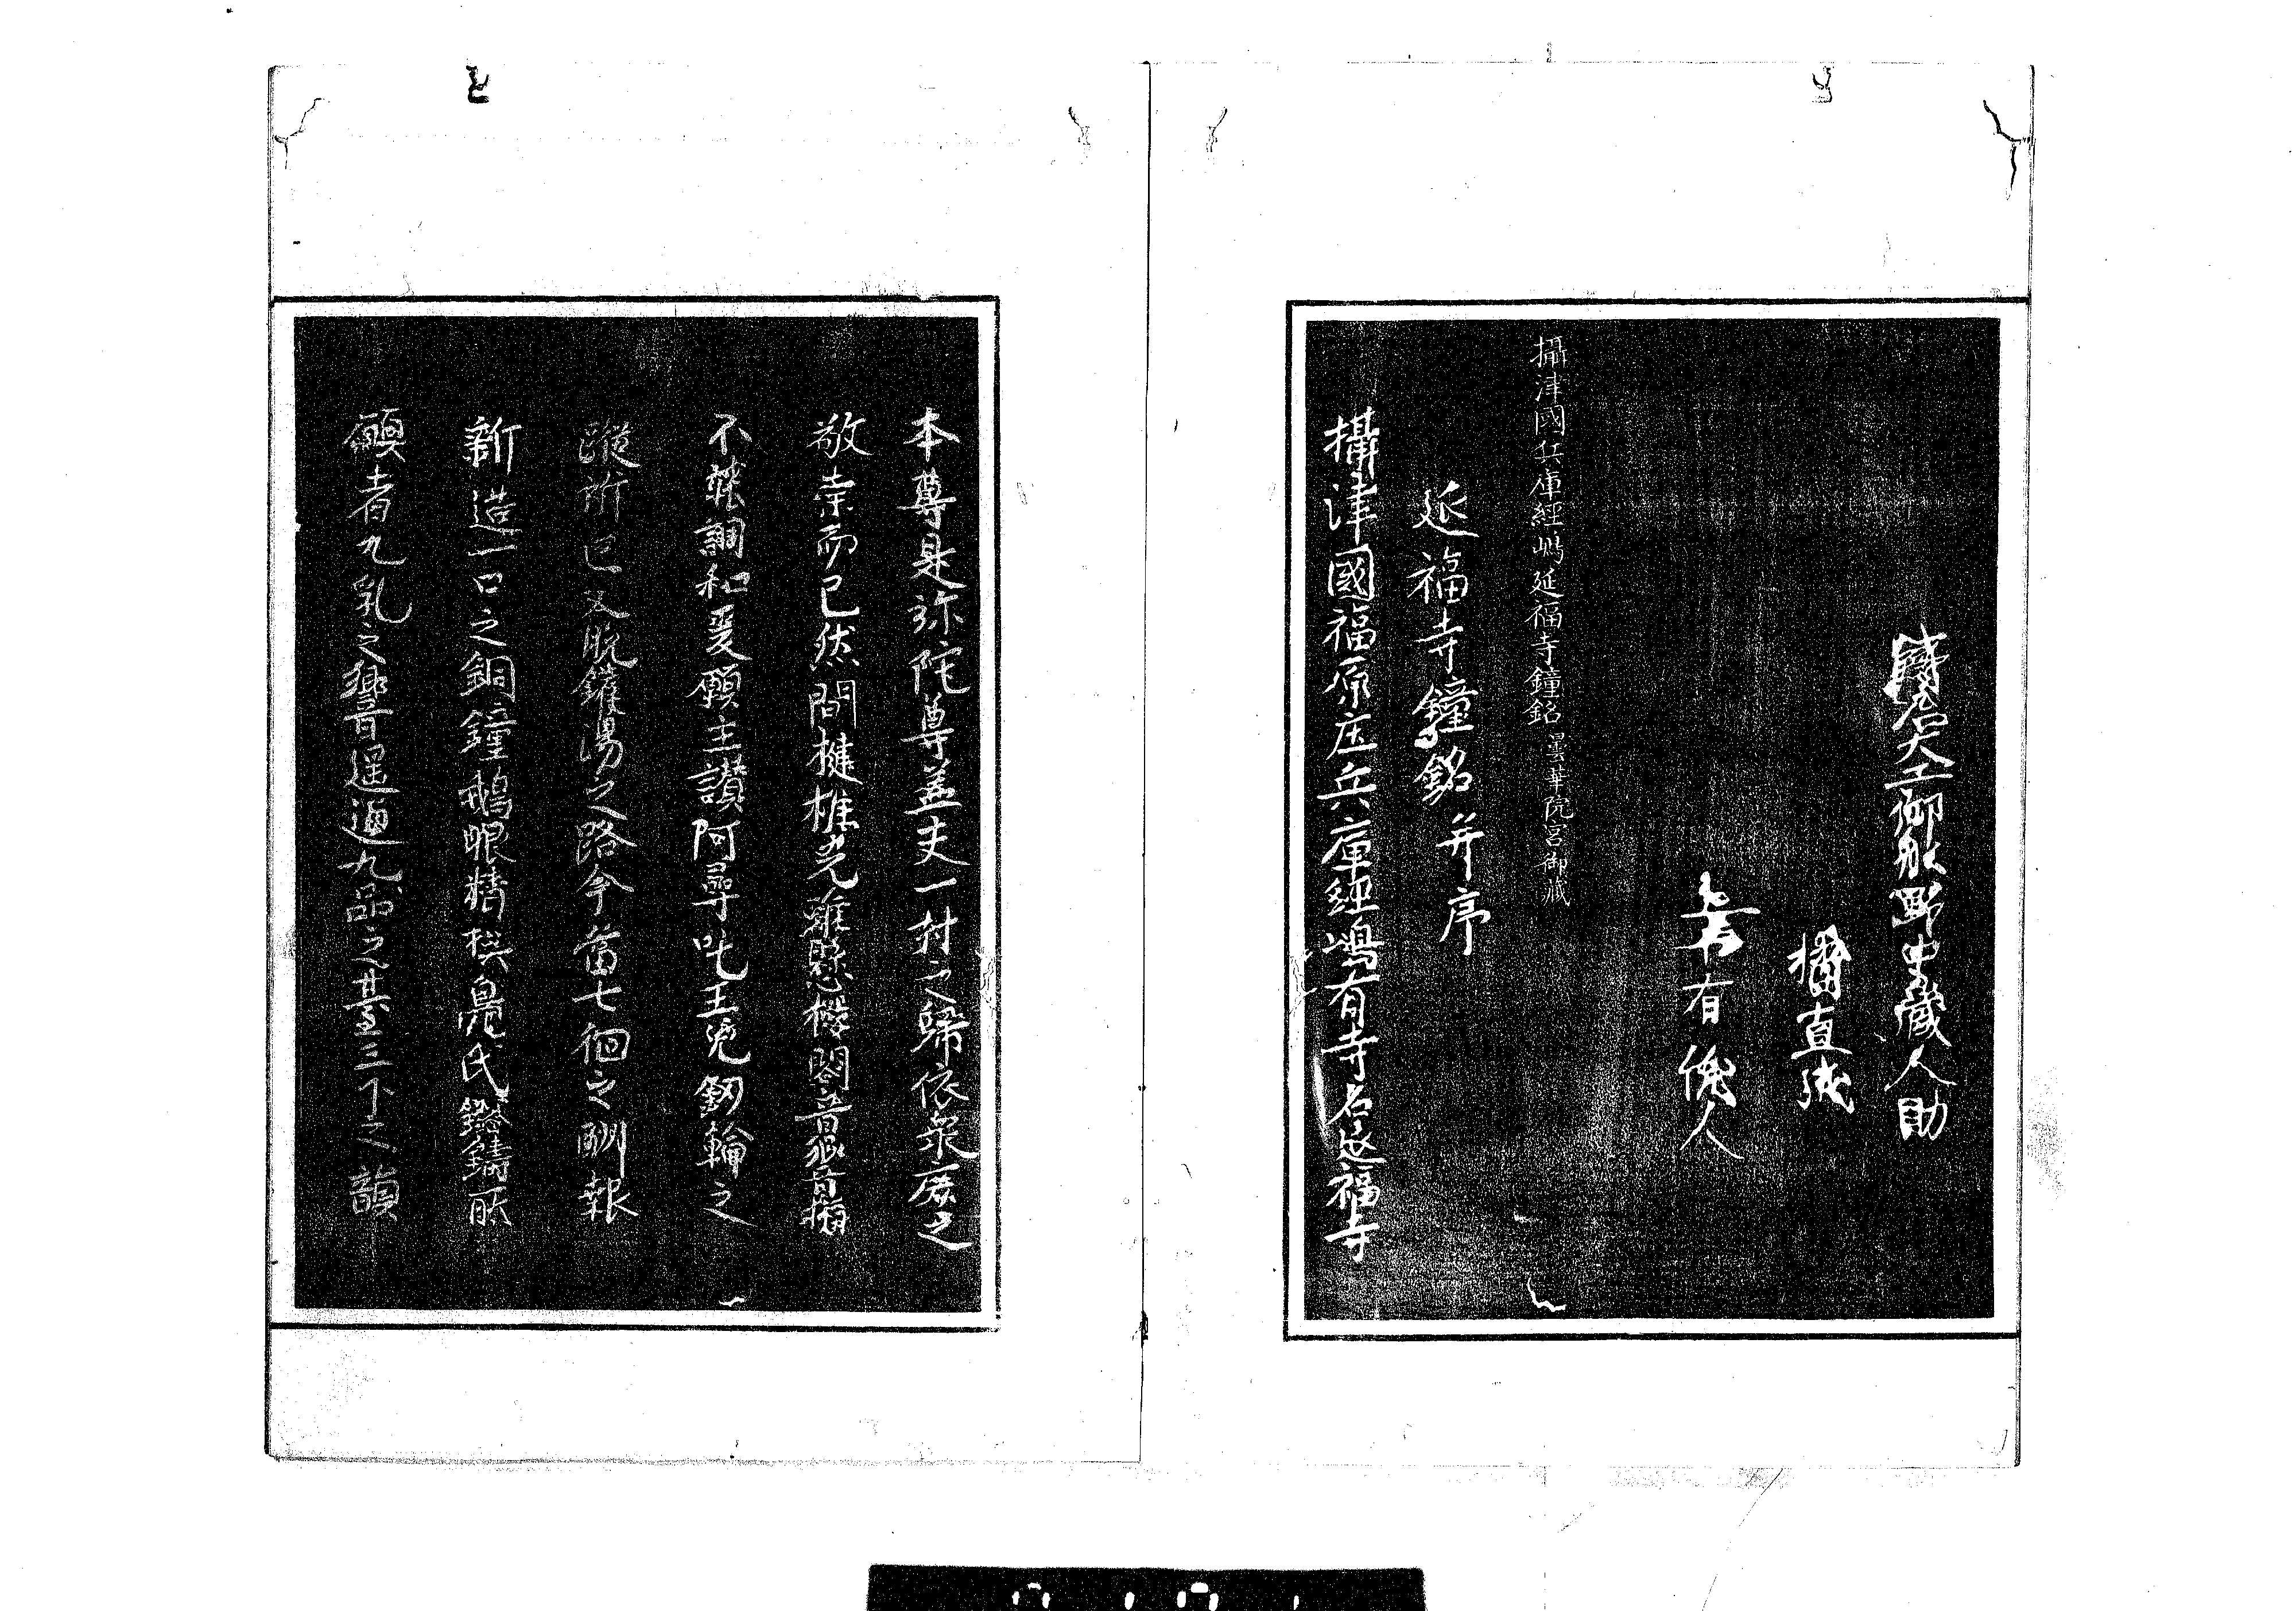 大工御船野中蔵人助
橘直
有儀人
攝津國兵庫經嶋延福寺鐘銘 曇華院宮御蔵
延福寺鐘銘并序
攝津國福原庄兵庫經嶋有寺名延福寺
本尊是弥陀尊蓋丈一村之歸依衆庶之
敬崇而已然間揵椎雖懸樓閣音響
不調和爰願主讃阿尋吒王免釼輪之
蹤所已又脱鑊湯之路今當七徊之酬報
新造一口之銅鐘鵝眼精供鳧氏鎔鑄所
願者九乳之響音遥通九品之臺三下之韻